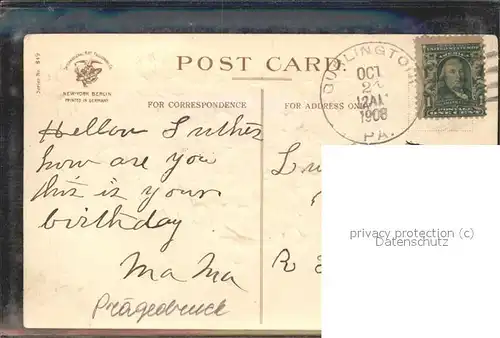 Series No. 849
NEW-YORK BERLIN
PRINTED IN GERMANY
POST CARD.
BURLINGTON
OCT
12 AM
1908
PA.
FOR CORRESPONDENCE
FOR ADDRESS ONLY
Hellow Luther
how are you
this is your
birthday
Ma Ma
Prägedruck
R
privacy protection (c)
Datenschutz